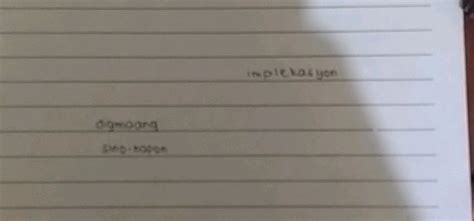 implekasyon
digmaang
sino-hapon